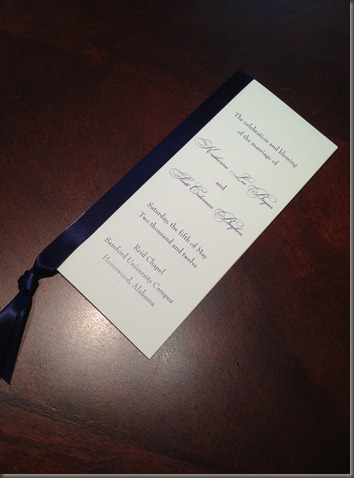 The celebration and blessing
of the marriage of
Katherine Lee
and
Scott
Saturday, the fifth of May
Two thousand and twelve
Reid Chapel
Samford University Campus
Homewood, Alabama